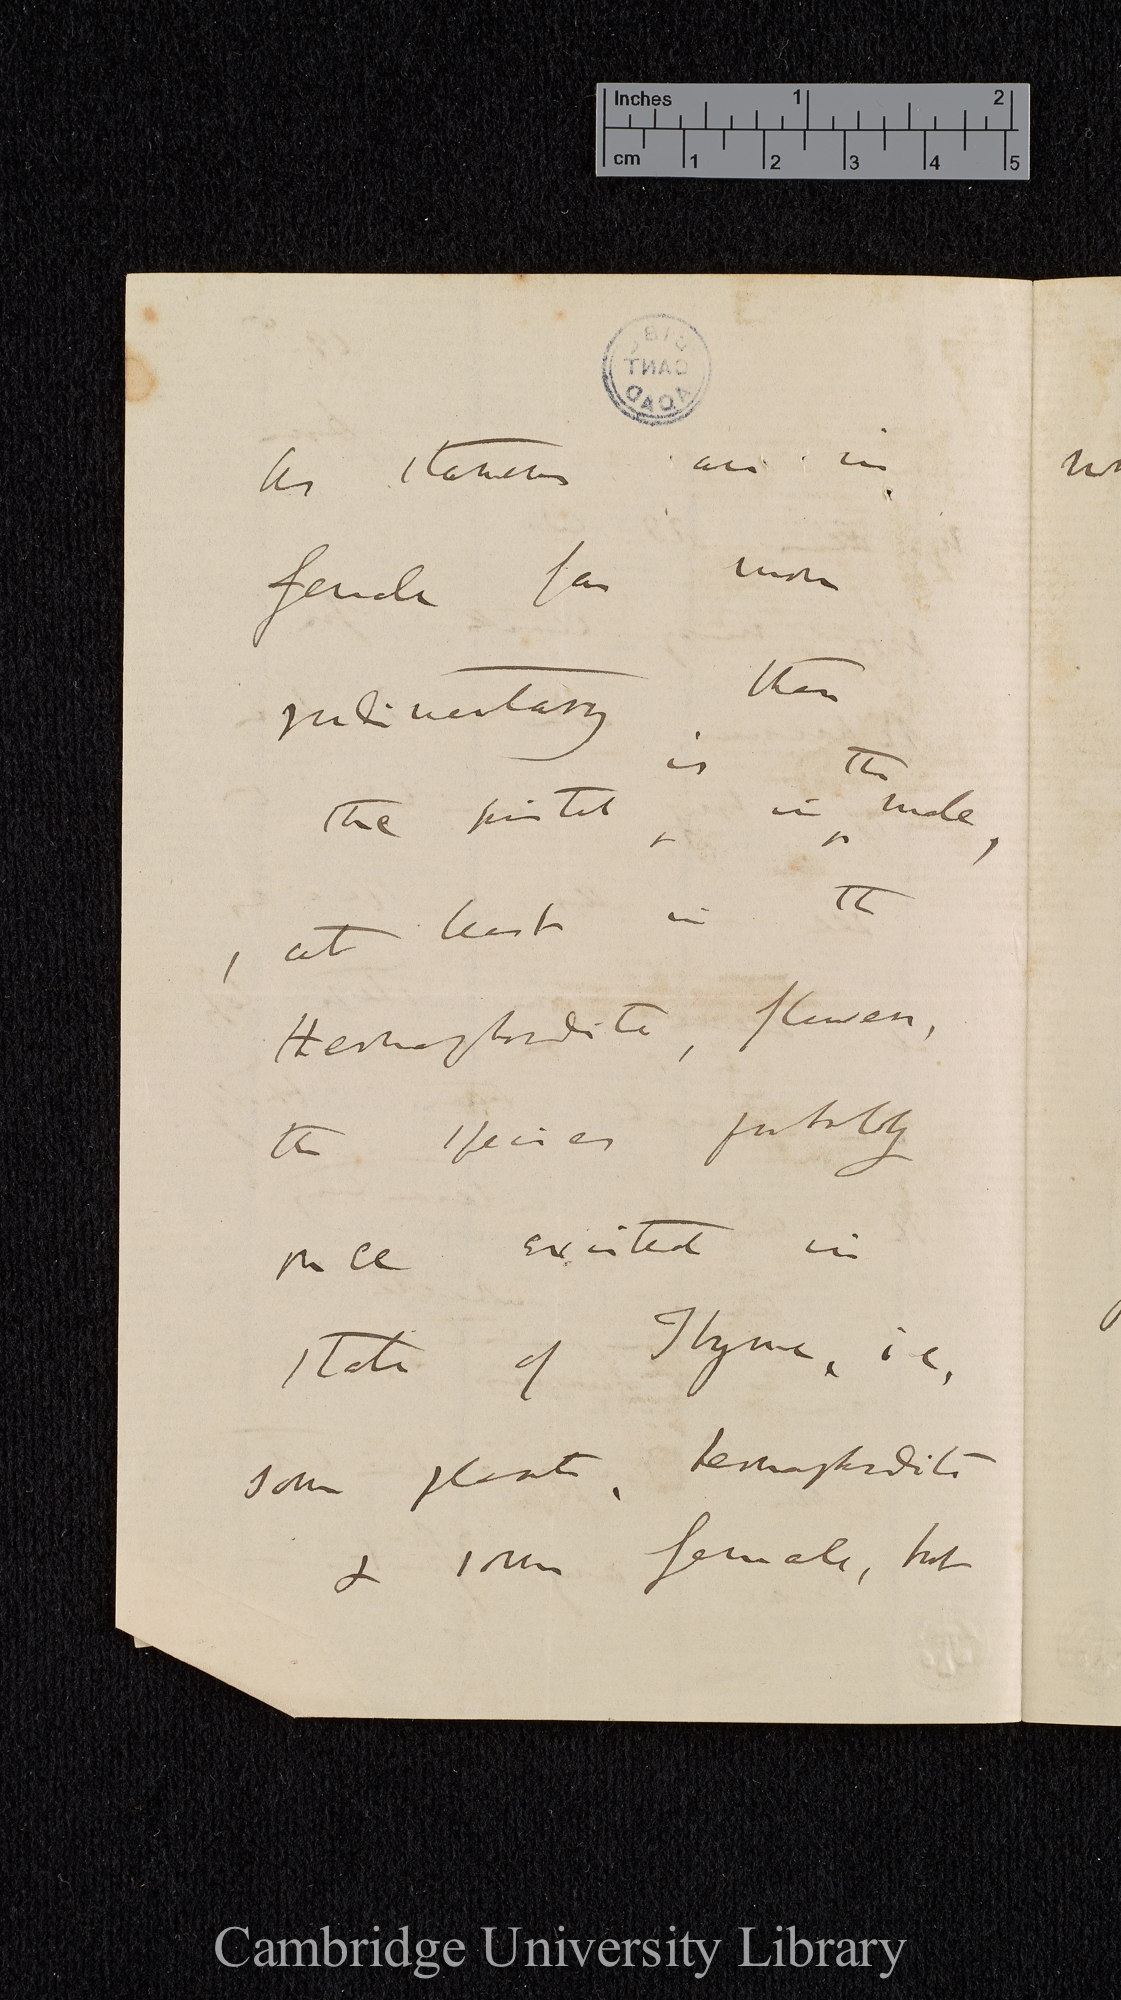 Inches 1 2
cm 1 2 3 4 5
As stamens are in
female far more
rudimentary than
is the
the pistil ^ in ^ male,
, at least in the
Hermaphrodite, flowers,
the species probably
once existed in
state of Thyme, ie,
some plants, hermaphrodite
& some female, but
Cambridge University Library